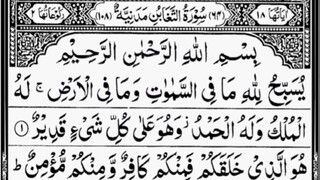 اٰیاتها ۱۸ (۶۴) سُوْرَةُ التَّغَابُنِ مَدَنِيَّةٌ (۱۰۸) رکوعاتها ۲
بِسْمِ اللّٰهِ الرَّحْمٰنِ الرَّحِيْمِ
يُسَبِّحُ لِلّٰهِ مَا فِى السَّمٰوٰتِ وَمَا فِى الْاَرْضِ ۚ لَهُ
الْمُلْكُ وَلَهُ الْحَمْدُ ؗ وَهُوَ عَلٰى كُلِّ شَىْءٍ قَدِيْرٌ ۝۱
هُوَ الَّذِىْ خَلَقَكُمْ فَمِنْكُمْ كَافِرٌ وَّمِنْكُمْ مُّؤْمِنٌ ؕ